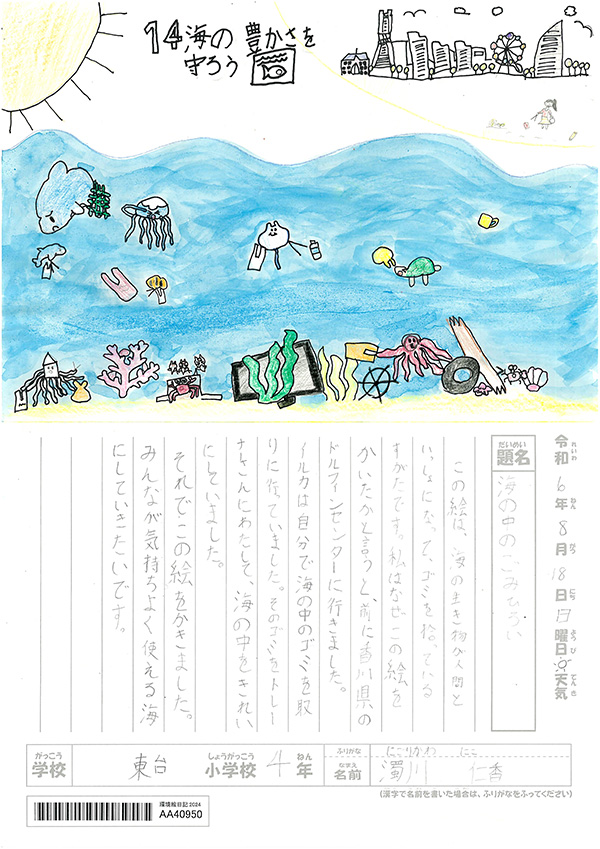 14海の豊かさを
守ろう
れいわ ねん がつ にち ようび てんき
令和6年8月18日日曜日天気
だいめい
題名
海の中のごみひろい
この絵は、海の生き物が人間と
いっしょになって、ゴミを拾っている
すがたです。私はなぜこの絵を
かいたかと言うと、前に香川県の
ドルフィンセンターに行きました。
イルカは自分で海の中のゴミを取
りに行っていました。そのゴミをトレー
ナーさんにわたして、海の中をきれい
にしていました。
それでこの絵をかきました。
みんなが気持ちよく使える海
にしていきたいです。
がっこう しょうがっこう ねん
学校 東台 小学校 4年
ふりがな にごりかわ にこ
なまえ
名前 濁川 仁香
(漢字で名前を書いた場合は、ふりがなをふってください)
環境絵日記2024
AA40950